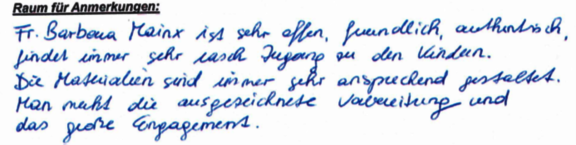 Raum für Anmerkungen:
Fr. Barbara Mainx ist sehr offen, freundlich, authentisch,
findet immer sehr rasch Zugang zu den Kindern.
Die Materialien sind immer sehr ansprechend gestaltet.
Man merkt die ausgezeichnete Vorbereitung und
das große Engagement.